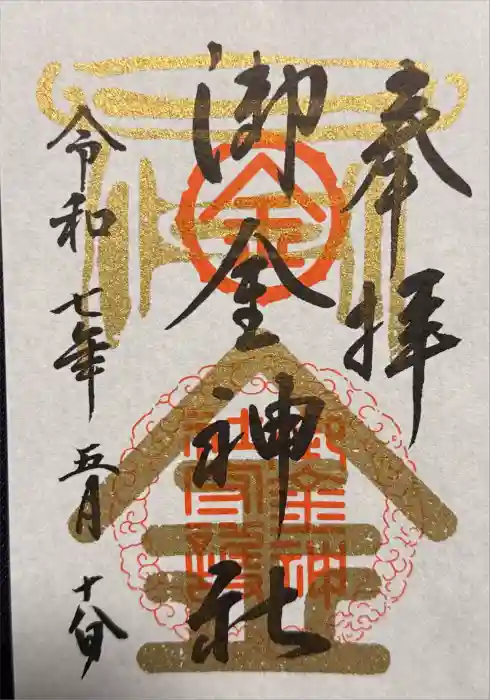 奉拝
御金神社
令和七年五月十八日
金